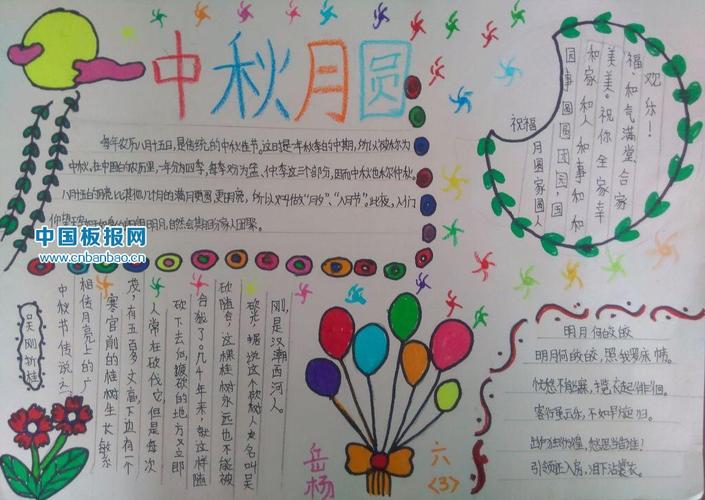 中秋月圆
每年农历八月十五日,是传统的中秋佳节。这时是一年秋季的中期,所以被称为
中秋,在中国的农历里,一年分为四季,每季又分为孟、仲、季三个部分,因而中秋也称仲秋。
八月十五的月亮比其他几月的满月更圆,更明亮,所以又叫做“月夕”、“八月节”。此夜,人们
仰望天空如玉如盘的朗朗明月,自然会期盼家人团聚。
祝福
月圆家圆人
圆事圆圆团团,国
和家和人和事和和
美美。祝你全家幸
福、和气满堂、合家
欢乐!
中国板报网
www.cnbanbao.cn
吴刚折桂
中秋节传说之一
相传月亮上的广
寒宫前的桂树生长繁
茂,有五百多丈高,下边有一个
人常在砍伐它,但是每次
砍下去后,被砍的地方又立即
合拢了。几千年来,就这样随
砍随合,这棵桂树永远也不能被
砍光,据说这个砍树人名叫吴
刚,是汉朝西河人。
明月何皎皎
明月何皎皎,照我罗床帏。
忧愁不能寐,揽衣起徘徊。
客行虽云乐,不如早旋归。
出户独彷徨,愁思当告谁!
引领还入房,泪下沾裳衣。
岳杨
六〈3〉